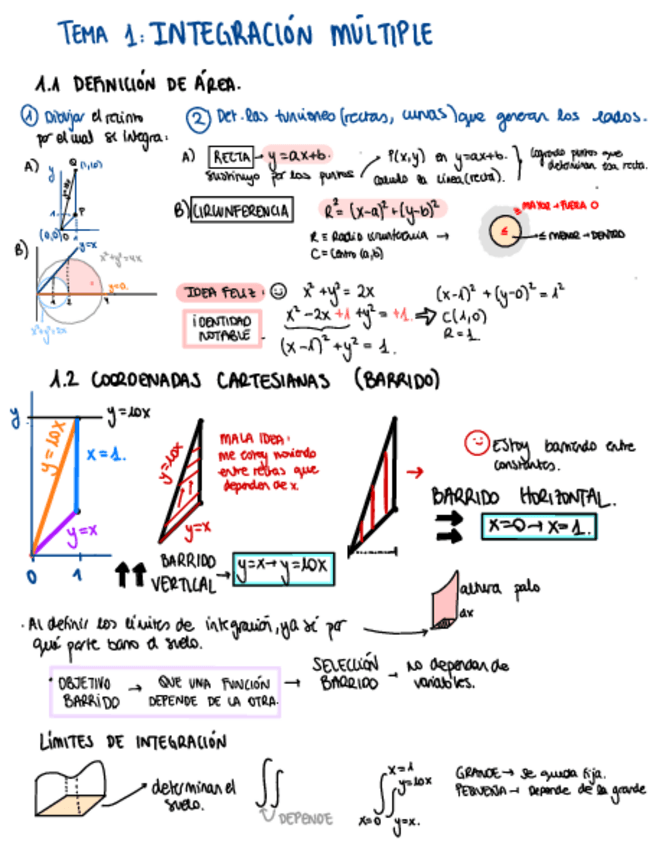 TEMA 1: INTEGRACIÓN MÚLTIPLE
1.1 DEFINICIÓN DE ÁREA.
① Dibujar el recinto por el cual se integra:
② Det. las funciones (rectas, curvas) que generan los lados.
A)
y
Q (1,10)
y=10x
1
P
(0,0) 0 1
A) RECTA → y=ax+b.
Sustituyo por los puntos
P(x,y) en y=ax+b.
calculo la línea (recta).
Logrando puntos que determinan esa recta.
B) CIRCUNFERENCIA
R² = (x-a)² + (y-b)²
R = Radio circunferencia →
C = Centro (a,b)
MAYOR → FUERA
≤
≤ MENOR → DENTRO
B)
y=x
x²+y²=4x
y=0
2
4
x²+y²=2x
IDEA FELIZ:
IDENTIDAD NOTABLE
x²+y² = 2x
x² - 2x +1 + y² = +1. ⇒
(x-1)² + y² = 1.
(x-1)² + (y-0)² = 1²
C(1,0)
R = 1
1.2 COORDENADAS CARTESIANAS (BARRIDO)
y
y=10x
y=10x
x=1.
y=x
0 1
y=10x
y=x
MALA IDEA:
me estoy moviendo
entre rectas que
dependen de x.
BARRIDO VERTICAL → y=x → y=10x
Estoy barriendo entre
constantes.
BARRIDO HORIZONTAL.
x=0 → x=1.
· Al definir los límites de integración, ya sé por
qué parte barro el suelo.
altura palo
dx
· OBJETIVO BARRIDO → QUE UNA FUNCIÓN DEPENDE DE LA OTRA. → SELECCIÓN BARRIDO → No dependan de variables.
LÍMITES DE INTEGRACIÓN
determinan el
suelo.
∬
DEPENDE
∫ x=0 x=1 ∫ y=x. y=10x
GRANDE → se queda fija.
PEQUEÑA → Depende de la grande